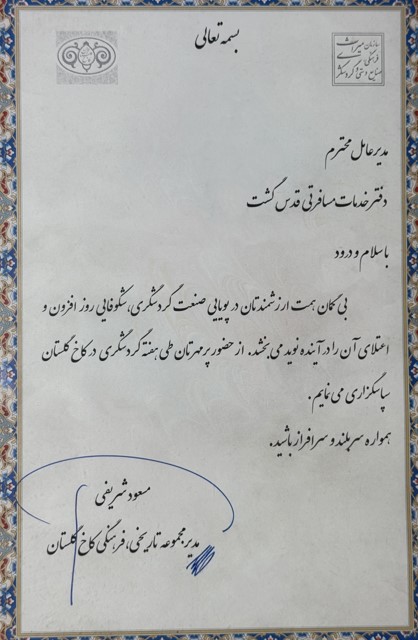 بسمه تعالی
سازمان میراث
فرهنگی
صنایع دستی و گردشگری
مدیرعامل محترم
دفتر خدمات مسافرتی قدس گشت
باسلام و درود
بی گمان همت ارزشمندتان در پویایی صنعت گردشگری، شکوفایی روز افزون و
اعتلای آن را در آینده نوید می بخشد. از حضور پرمهرتان طی هفته گردشگری در کاخ گلستان
سپاسگزاری می نمایم.
همواره سربلند و سرافراز باشید.
مسعود شریفی
مدیر مجموعه تاریخی، فرهنگی کاخ گلستان